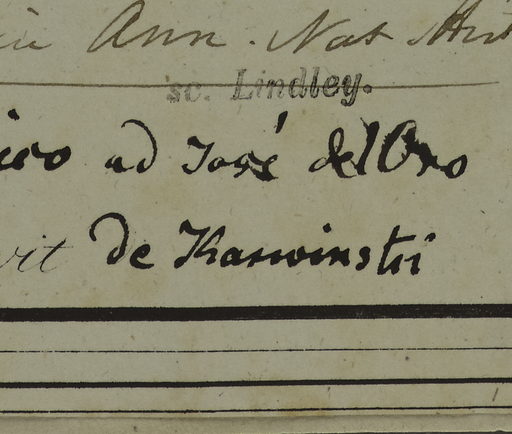 Ann. Nat Hist
sc. Lindley.
ico ad José del Oro
vit de Karwinskii